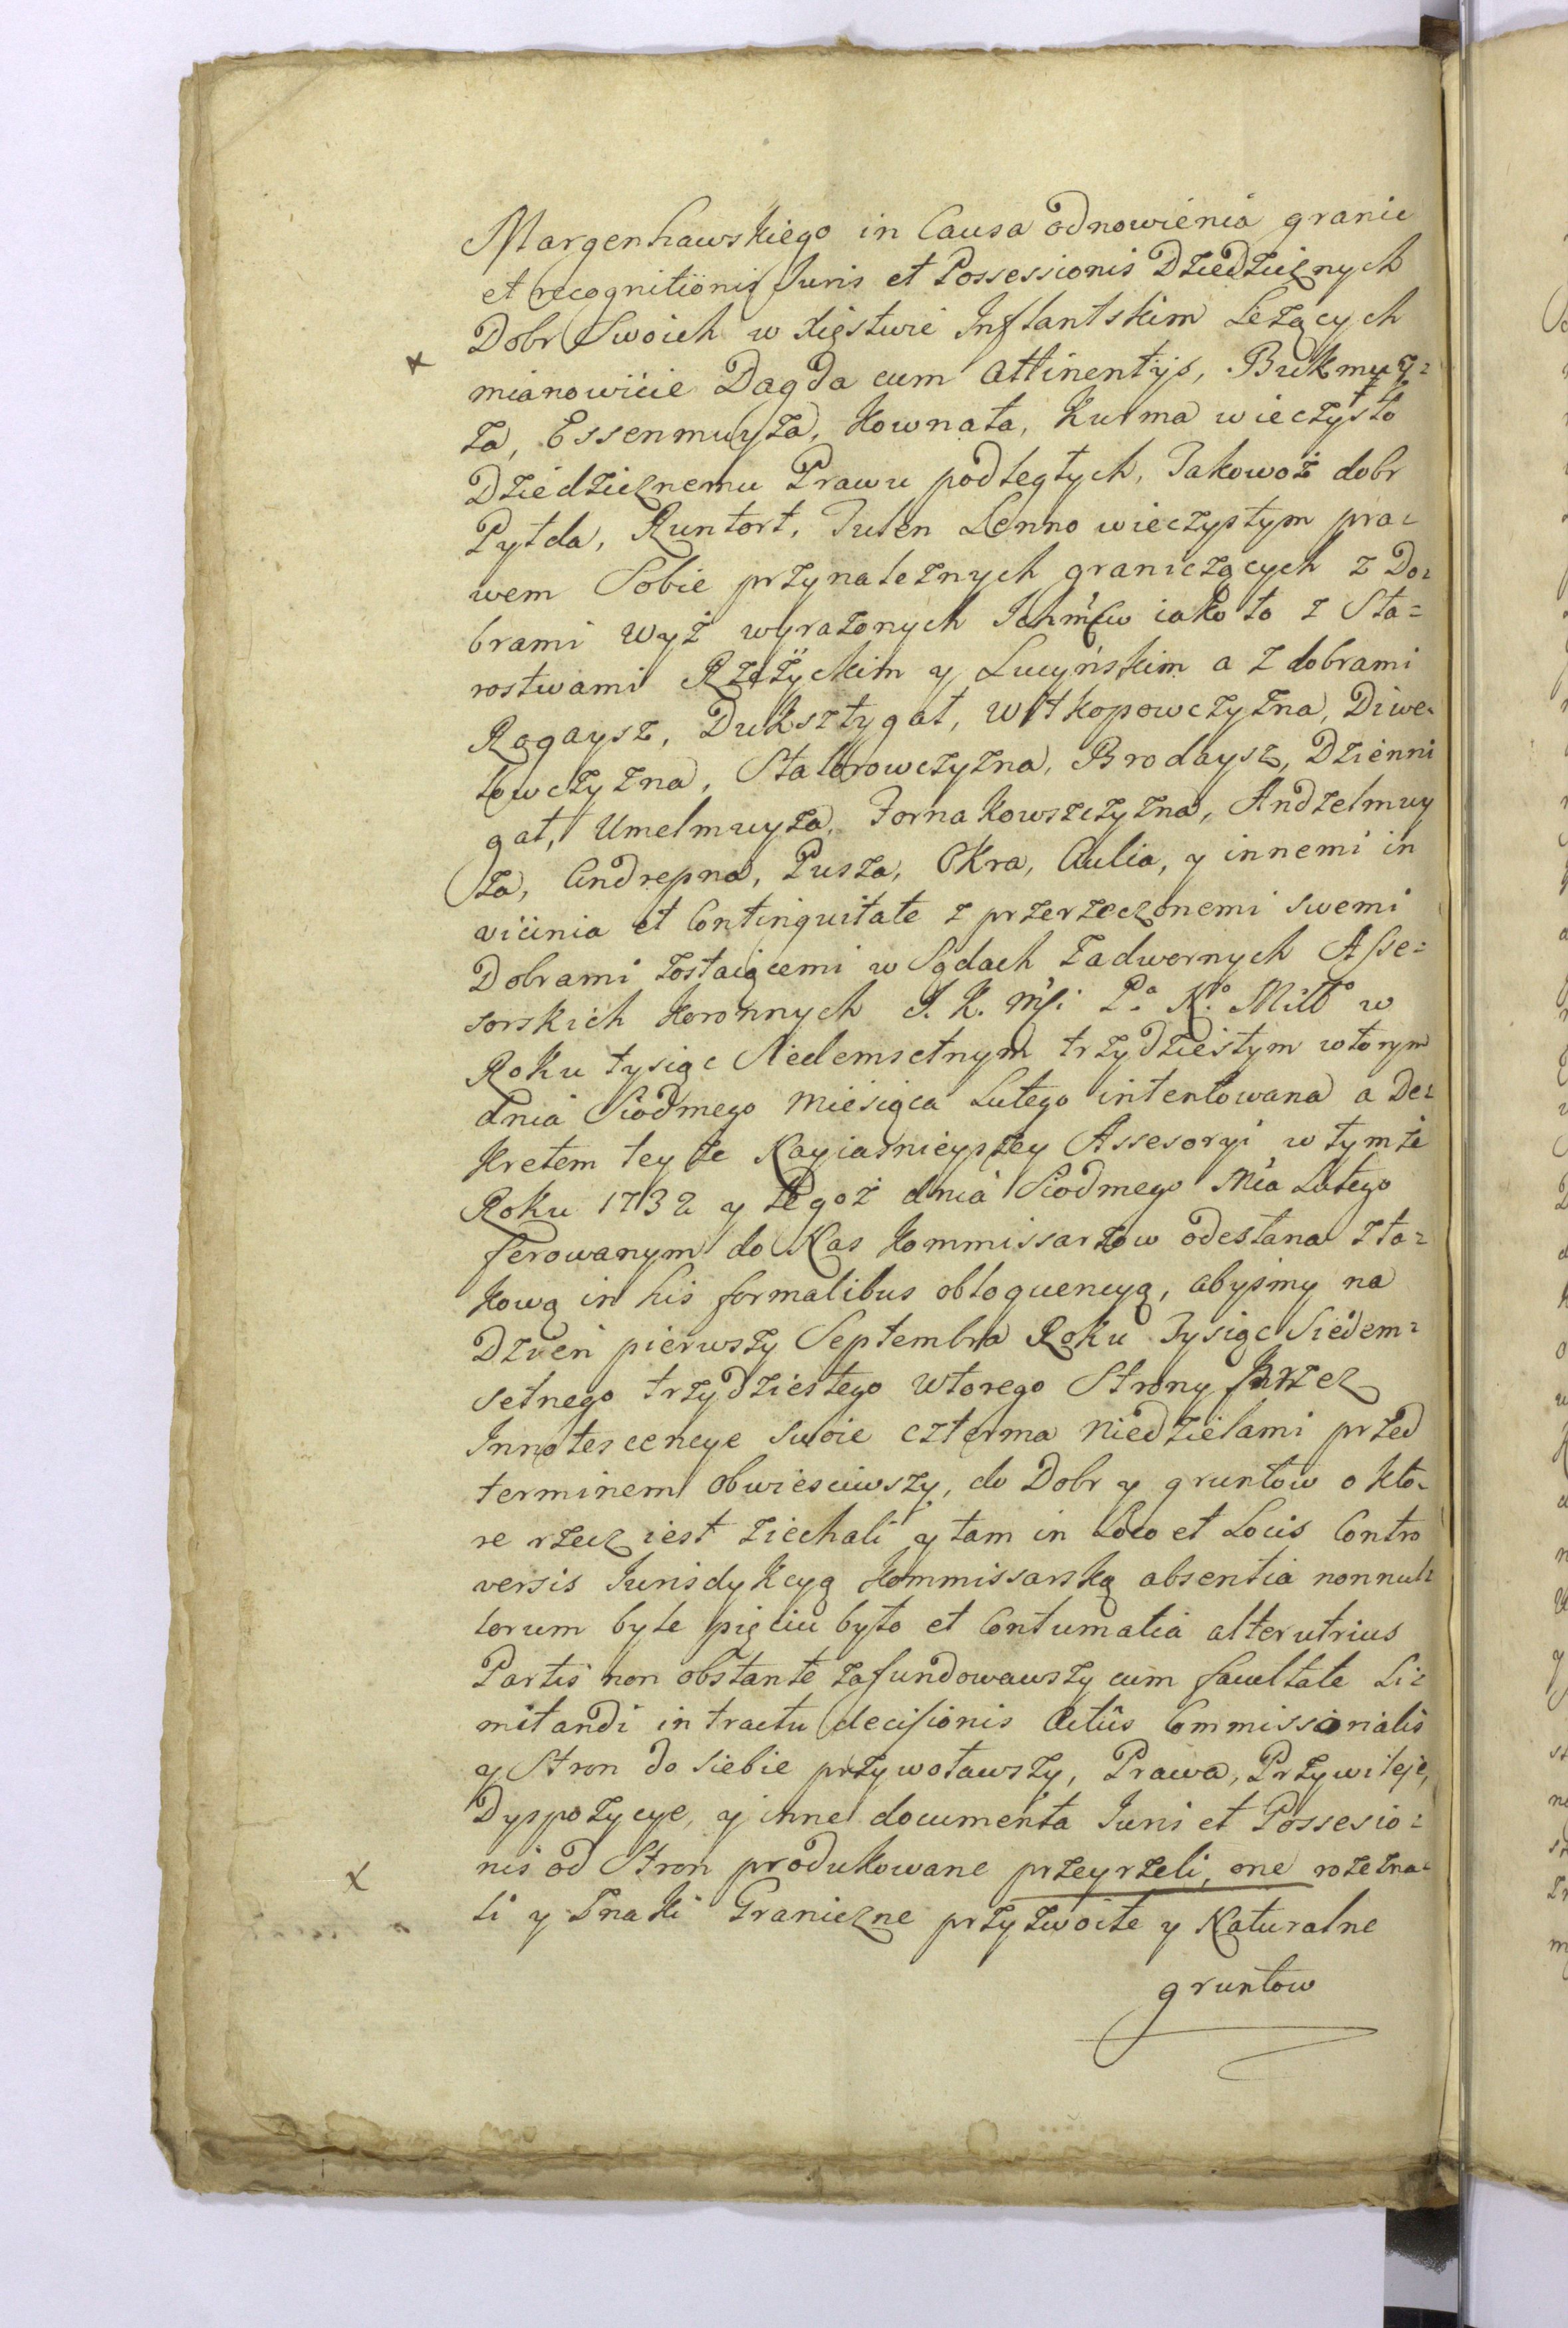 Margenhawskiego in Causa odnowienia granic
et recognitionis Juris et Possessionis Dziedzicznych
Dobr Swoich w Xięstwie Inflantskim Leżących
mianowicie Dagda cum attinentijs, Bukmuy=
za, Essenmuyza, Kownata, Kurma wieczysto
Dziedzicznemu Prawu podległych, Jakowoż dobr
Pylda, Runtort, Julen Lenno wieczystym pra=
wem Sobie przynależnych graniczących z Do=
brami Wyż wyrażonych Ichmćw iako to z Sta=
rostwami Rzeżyckim y Lucyńskim a z dobrami
Rogaysz, Duksztygał, Witkopowczyzna, Diwe=
lowczyzna, Stalorowczyzna, Brodaysz, Dzienni
gał, Umelmuyza, Jornakowszczyzna, Andzelmuy
za, Andrepna, Pusza, Okra, Aulia, y innemi in
vicinia et Continguitate z przerzeczonemi swemi
Dobrami zostaiącemi w Sądach Zadwornych Asse=
sorskich Koronnych J. K. Mści Pa. No. Miłо w
Roku tysiąc Siedemsetnym trzydziestym wtorym
dnia Siodmego Miesiąca Lutego intentowana a De=
kretem teyże Nayiasnieyszey Assesoryi w tymże
Roku 1732 y tegoż dnia Siodmego Mca Lutego
ferowanym do Nas Kommissarzow odesłana z ta=
kową in his formalibus obloquencyą, abyśmy na
Dzień pierwszy Septembra Roku Tysiąc Siedem=
setnego trzydziestego Wtorego Strony Przez
Innotescencye swoie czterma Niedzielami przed
terminem obwiesciwszy, do Dobr y gruntow o kto=
re rzecz iest ziechali y tam in Loco et Locis Contro
versis Jurisdykcyą Kommissarską absentia nonnul=
lorum byle pięciu było et Contumatia alterutrius
Partis non obstante zafundowawszy cum facultate Li=
mitandi in tractu decisionis Actûs Commissionalis
y Stron do siebie przywoławszy, Prawa, Przywileje,
Dyspozycye, y inne documenta Juris et Possesio=
nis od Stron produkowane przeyrzeli, one rozezna=
li y Znaki Graniczne przyzwoite y Naturalne
gruntow